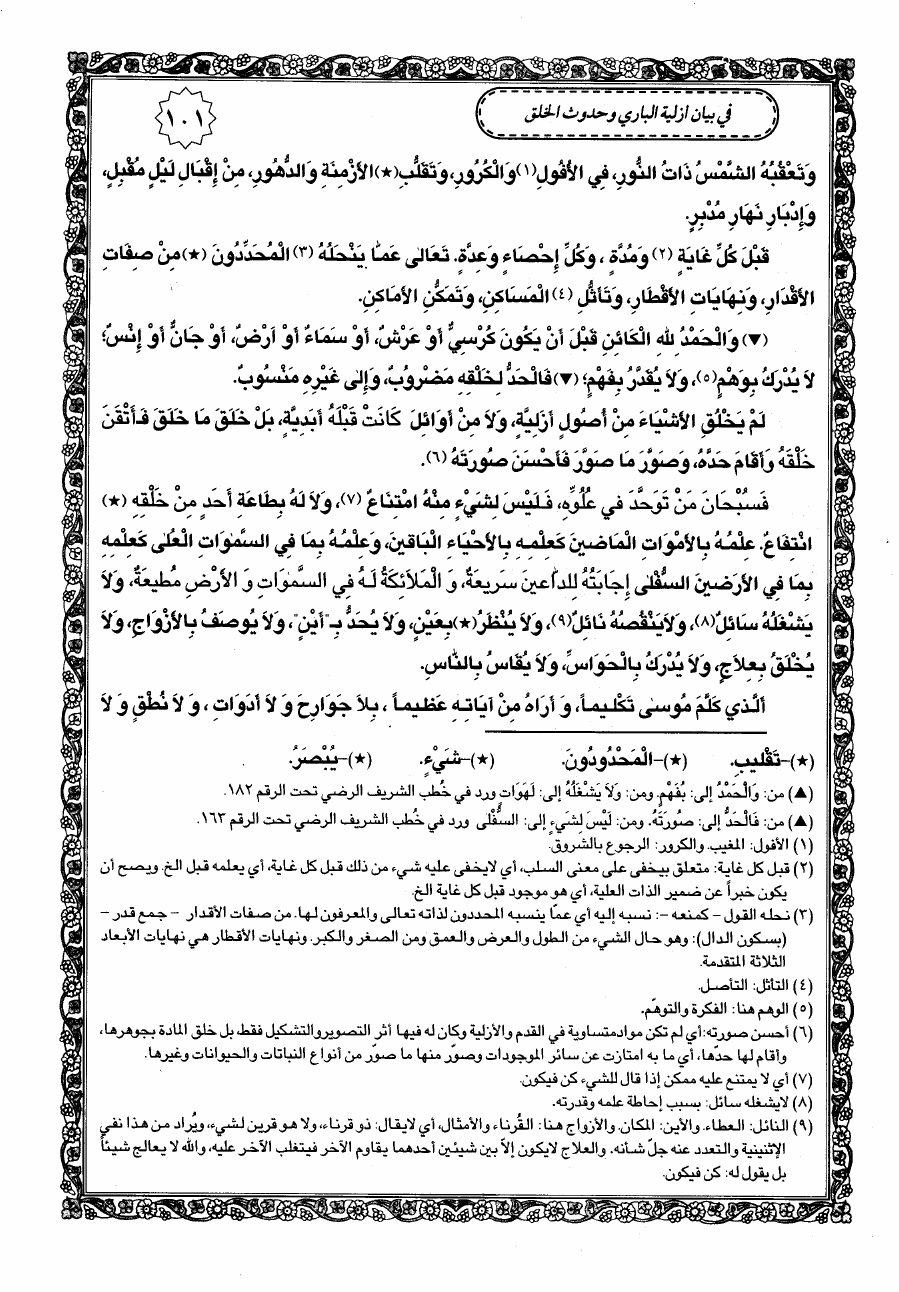 في بيان ازلية الباري وحدوث الخلق
١٠١
وَتَعْقُبُهُ الشَّمْسُ ذَاتُ النُّورِ، فِي الأُفُولِ(١)وَالْكُرُورِ، وَتَقَلُّبِ(★)الأَزْمِنَةِ وَالدُّهُورِ، مِنْ إِقْبَالِ لَيْلٍ مُقْبِلٍ،
وَإِدْبَارِ نَهَارٍ مُدْبِرٍ.
قَبْلَ كُلِّ غَايَةٍ (٢) وَمُدَّةٍ ، وَكُلِّ إِحْصَاءٍ وَعِدَّةٍ. تَعَالى عَمَّا يَنْحَلُهُ (٣) الْمُحَدِّدُونَ (★)مِنْ صِفَاتِ
الأَقْدَارِ، وَنِهَايَاتِ الأَقْطَارِ، وَتَأَثُّلِ (٤) الْمَسَاكِنِ، وَتَمَكُّنِ الأَمَاكِنِ.
(▼) وَالْحَمْدُ للهِ الْكَائِنِ قَبْلَ أَنْ يَكُونَ كُرْسِيٌّ أَوْ عَرْشٌ، أَوْ سَمَاءٌ أَوْ أَرْضٌ، أَوْ جَانٌّ أَوْ إِنْسٌ؛
لاَ يُدْرَكُ بِوَهْمٍ(٥)، وَلاَ يُقَدَّرُ بِفَهْمٍ؛ (▼) فَالْحَدُّ لِخَلْقِهِ مَضْرُوبٌ، وَإِلى غَيْرِهِ مَنْسُوبٌ.
لَمْ يَخْلُقِ الأَشْيَاءَ مِنْ أُصُولٍ أَزَلِيَّةٍ، وَلاَ مِنْ أَوَائِلَ كَانَتْ قَبْلَهُ أَبَدِيَّةٍ، بَلْ خَلَقَ مَا خَلَقَ فَأَتْقَنَ
خَلْقَهُ وَأَقَامَ حَدَّهُ، وَصَوَّرَ مَا صَوَّرَ فَأَحْسَنَ صُورَتَهُ (٦).
فَسُبْحَانَ مَنْ تَوَحَّدَ في عُلُوِّهِ، فَلَيْسَ لِشَيْءٍ مِنْهُ امْتِنَاعٌ (٧)، وَلاَ لَهُ بِطَاعَةِ أَحَدٍ مِنْ خَلْقِهِ (★)
انْتِفَاعٌ. عِلْمُهُ بِالأَمْوَاتِ الْمَاضينَ كَعِلْمِهِ بِالأَحْيَاءِ الْبَاقينَ، وَعِلْمُهُ بِمَا فِي السَّموَاتِ الْعُلى كَعِلْمِهِ
بِمَا فِي الأَرَضينَ السُّفْلى إِجَابَتُهُ لِلدَّاعينَ سَريعَةٌ، وَ الْمَلاَئِكَةُ لَهُ فِي السَّموَاتِ وَ الأَرْضِ مُطيعَةٌ، وَلاَ
يَشْغَلُهُ سَائِلٌ(٨)، وَلاَيَنْقُصُهُ نَائِلٌ(٩)، وَلاَ يُنْظَرُ(★)بِعَيْنٍ، وَلاَ يُحَدُّ بِـ"أَيْنٍ"، وَلاَ يُوصَفُ بِالأَزْوَاجِ، وَلاَ
يُخْلَقُ بِعِلاَجٍ، وَلاَ يُدْرَكُ بِالْحَوَاسِّ، وَلاَ يُقَاسُ بِالنَّاسِ.
اَلَّذي كَلَّمَ مُوسى تَكْليماً، وَ أَرَاهُ مِنْ آيَاتِهِ عَظيماً ، بِلاَ جَوَارِحَ وَ لاَ أَدَوَاتٍ ، وَ لاَ نُطْقٍ وَ لاَ
(★)–تَقْليبِ. (★)–الْمَحْدُودُونَ. (★)–شَيْءٍ. (★)–يُبْصَرُ.
(▲) من: وَالْحَمْدُ إلى: بُفَهْمٍ. ومن: وَلاَ يَشْغَلُهُ إلى: لَهَوَاتٍ ورد في خُطب الشريف الرضي تحت الرقم ١٨٢.
(▲) من: فَالْحَدُّ إلى: صُورَتَهُ. ومن: لَيْسَ لِشَيءٍ إلى: السُّفْلى ورد في خُطب الشريف الرضي تحت الرقم ١٦٣.
(١) الأفول: المغيب. والكرور: الرجوع بالشروق.
(٢) قبل كل غاية: متعلق بيخفى على معنى السلب، أي لايخفى عليه شيء من ذلك قبل كل غاية، أي يعلمه قبل الخ. ويصح أن
يكون خبراً عن ضمير الذات العلية، أي هو موجود قبل كل غاية الخ.
(٣) نحله القول – كمنعه –: نسبه إليه أي عمّا ينسبه المحددون لذاته تعالى والمعرفون لها. من صفات الأقدار – جمع قدر –
(بسكون الدال): وهو حال الشيء من الطول والعرض والعمق ومن الصغر والكبر. ونهايات الأقطار هي نهايات الأبعاد
الثلاثة المتقدمة.
(٤) التأثل: التأصل.
(٥) الوهم هنا: الفكرة والتوهّم.
(٦) أحسن صورته: أي لم تكن مواد متساوية في القدم والأزلية وكان له فيها أثر التصوير والتشكيل فقط، بل خلق المادة بجوهرها،
وأقام لها حدّها، أي ما به امتازت عن سائر الموجودات وصوّر منها ما صوّر من أنواع النباتات والحيوانات وغيرها.
(٧) أي لا يمتنع عليه ممكن إذا قال للشيء كن فيكون.
(٨) لايشغله سائل: بسبب إحاطة علمه وقدرته.
(٩) النائل: العطاء. والأين: المكان. والأزواج هنا: القُرناء والأمثال، أي لايقال: ذو قرناء، ولا هو قرين لشيء، ويُراد من هذا نفي
الإثنينية والتعدد عنه جلّ شأنه. والعلاج لايكون إلاّ بين شيئين أحدهما يقاوم الآخر فيتغلب الآخر عليه، والله لا يعالج شيئاً
بل يقول له: كن فيكون.